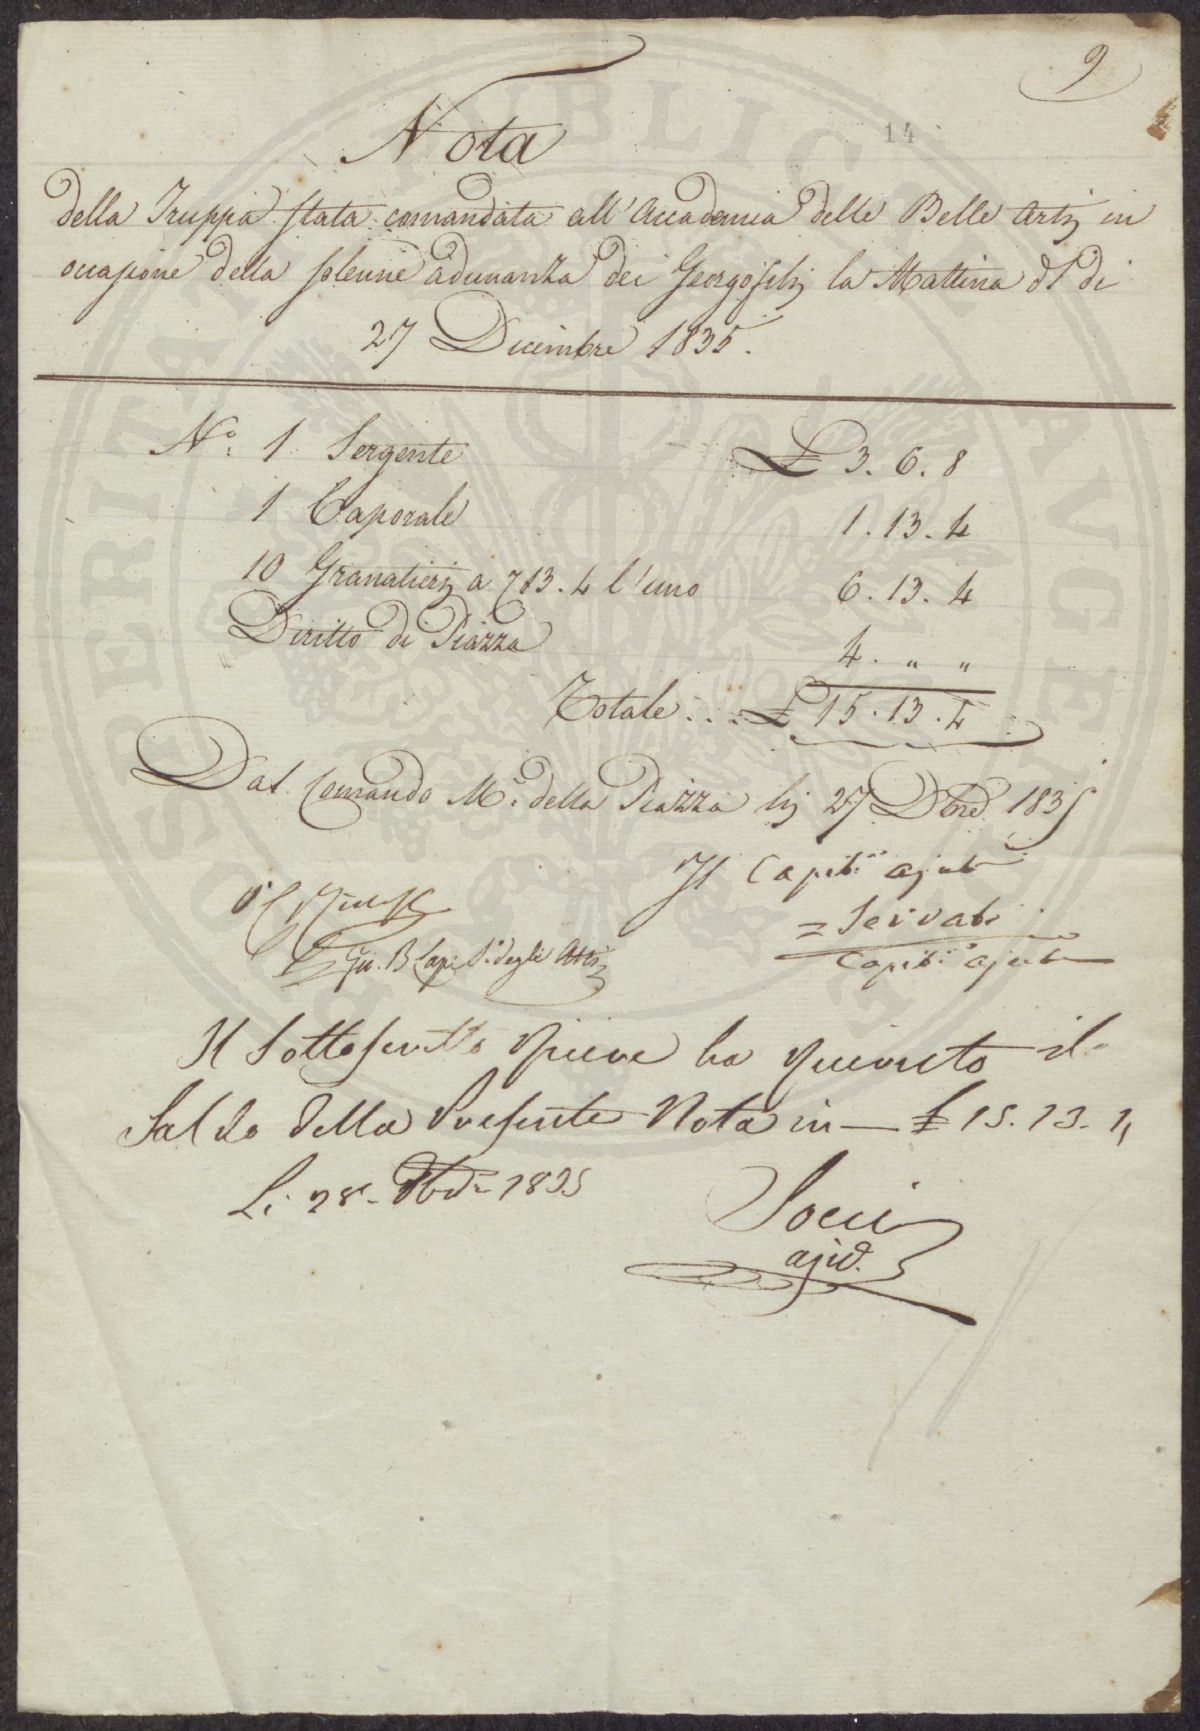 9
14
Nota
della Truppa stata comandata all'Accademia delle Belle Artj in
occasione della solenne adunanza dei Georgofilj la Mattina del di
27 Dicembre 1835.
N.° 1 Sergente £ 3. 6. 8
1 Caporale 1. 13. 4
10 Granatierj a 13. 4 l'uno 6. 13. 4
Diritto di Piazza 4. " "
Totale . . . £ 15. 13. 4
Dal Comando M.e della Piazza lij 27 Dbre 1835
Il Capit.° ajut
= Servat
Capit.° ajut
Gio. B degli Atti
Il Sottoscritto riceve ha ricevuto il
Saldo della Presente Nota in — £ 15. 13. 4
Li 28 Xbre 1835
Socci
ajud.